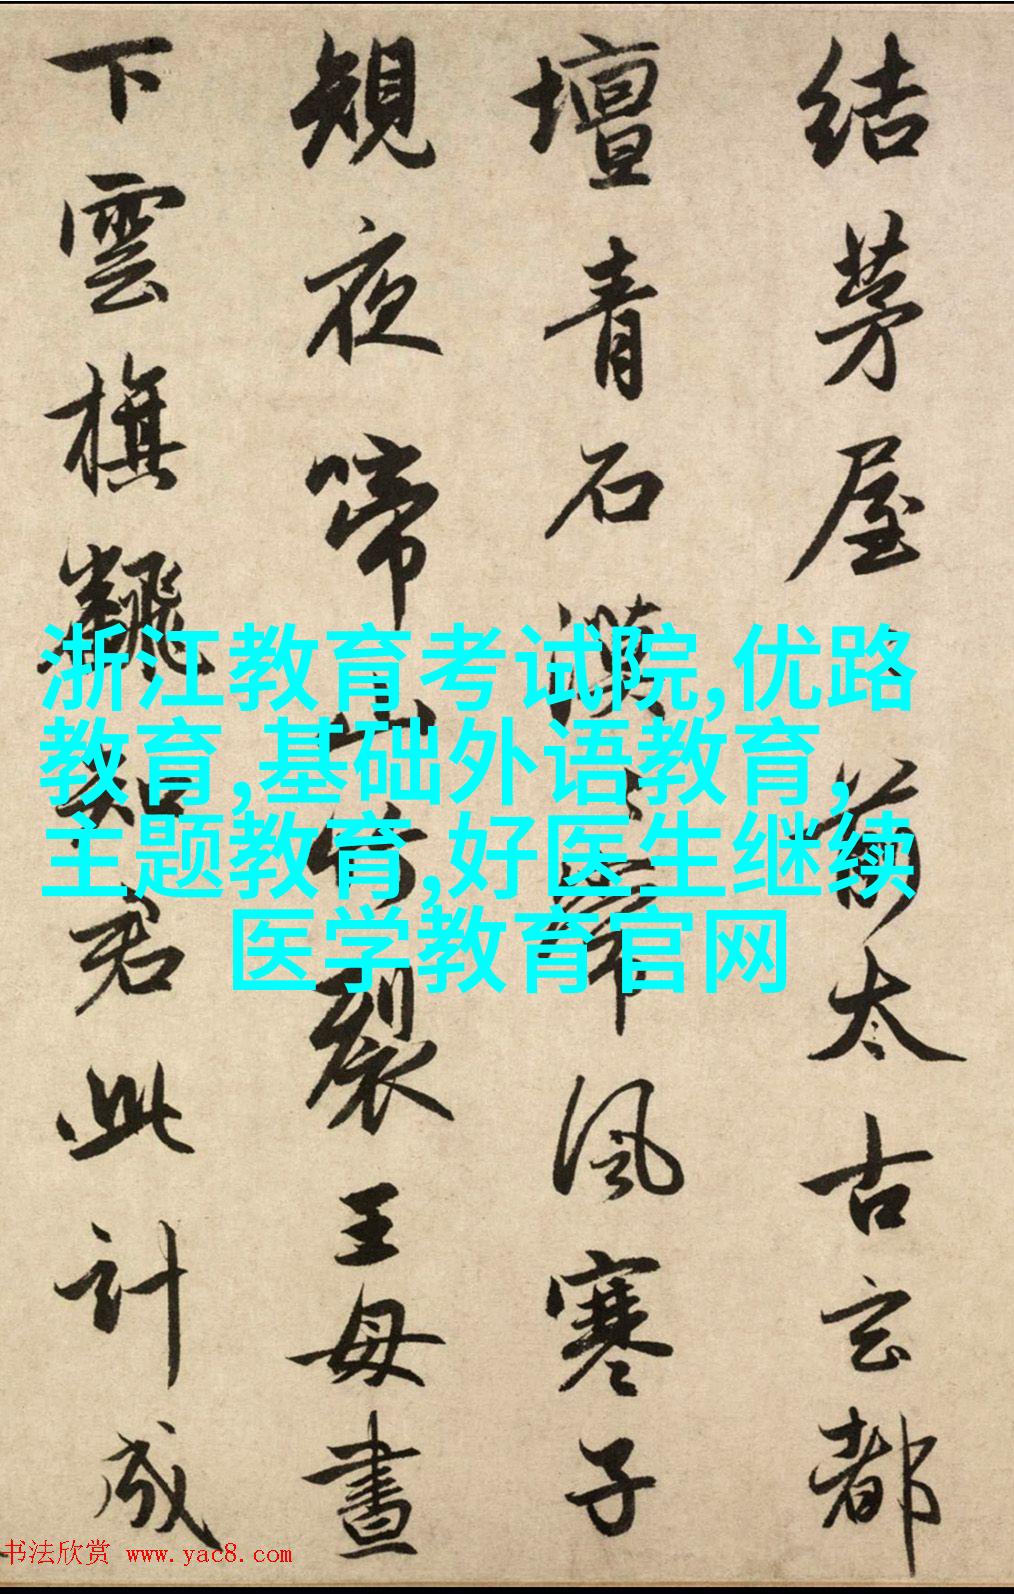 结茅屋前太古玄都
壇青石漠常風寒子
規夜啼山竹裂王母晝
下雲旗飜知君此計成
浙江教育考试院,优路
教育,基础外语教育,
主题教育,好医生继续
医学教育官网
书法欣赏 www.yac8.com